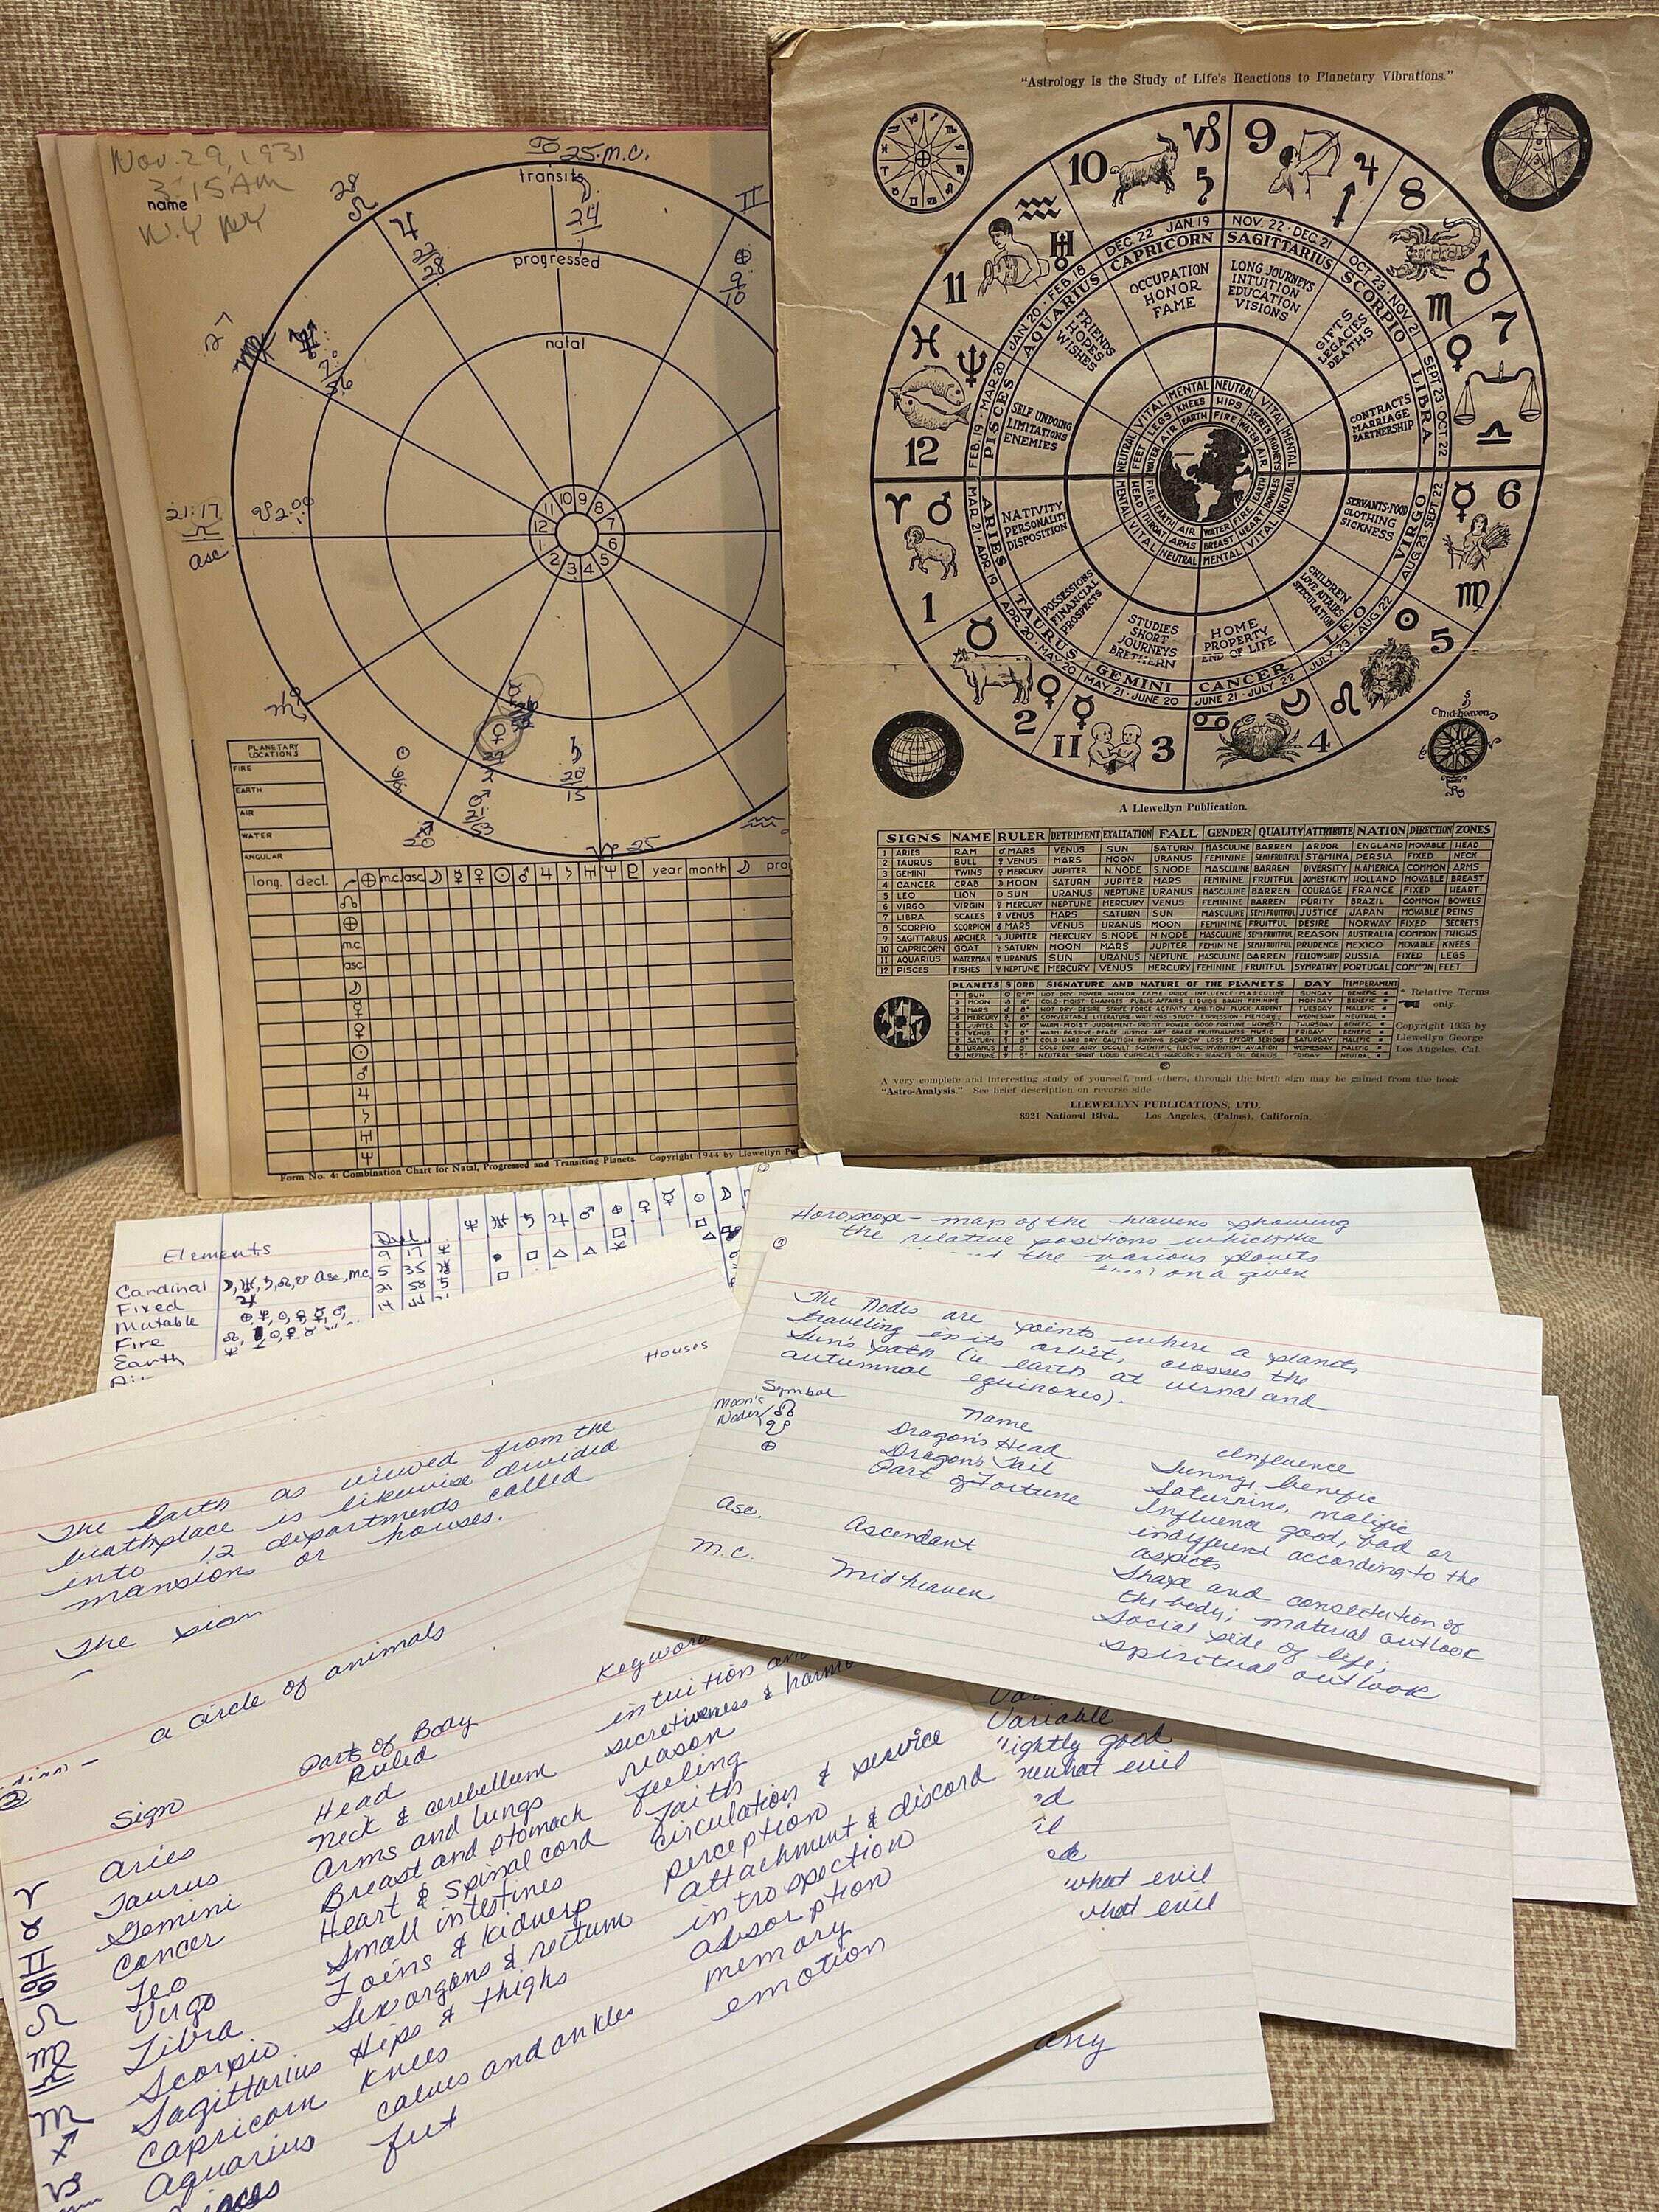 Nov. 29, 1931
3:15 AM
name
N.Y NY
♋ 25 m.c.
transits
progressed
natal
28 ♌
♃ 22/28
♊
⊕ 9/10
21:17
♎
asc.
10 9 8 7 6 5 4 3 2 1 12 11
♄ 20/15
♂ 21/53
♐ 20
♑ 25
PLANETARY LOCATIONS
FIRE
EARTH
AIR
WATER
ANGULAR
long. decl. ⊕ m.c. asc. ☽ ☿ ♀ ☉ ♂ ♃ ♄ ♅ ♆ ♇ year month ☽
☊
⊕
m.c.
asc.
☽
☿
♀
☉
♂
♃
♄
♅
♆
Form No. 4: Combination Chart for Natal, Progressed and Transiting Planets. Copyright 1944 by Llewellyn
"Astrology Is the Study of Life's Reactions to Planetary Vibrations."
10 ♑ ♄
DEC. 22 JAN. 19
CAPRICORN
OCCUPATION
HONOR
FAME
9 ♃ ♐
NOV. 22 - DEC. 21
SAGITTARIUS
LONG JOURNEYS
INTUITION
EDUCATION
VISIONS
8 ♂ ♏
OCT. 23 - NOV. 21
SCORPIO
GIFTS
LEGACIES
DEATHS
7 ♀ ♎
SEPT. 23 - OCT. 22
LIBRA
CONTRACTS
MARRIAGE
PARTNERSHIP
6 ☿ ♍
AUG. 23 - SEPT. 22
VIRGO
SERVANTS-FOOD
CLOTHING
SICKNESS
5 ☉ ♌
JULY 23 - AUG. 22
LEO
CHILDREN
LOVE AFFAIRS
SPECULATION
4 ☽ ♋
JUNE 21 - JULY 22
CANCER
HOME
PROPERTY
END OF LIFE
3 ☿ ♊
MAY 21 - JUNE 20
GEMINI
STUDIES
SHORT
JOURNEYS
BRETHERN
2 ♀ ♉
APR. 20 - MAY 20
TAURUS
POSSESSIONS
FINANCIAL
PROSPECTS
1 ♂ ♈
MAR. 21 - APR. 19
ARIES
NATIVITY
PERSONALITY
DISPOSITION
12 ♆ ♓
FEB. 19 - MAR. 20
PISCES
SELF UNDOING
LIMITATIONS
ENEMIES
11 ♅ ♒
JAN. 20 - FEB. 18
AQUARIUS
FRIENDS
HOPES
WISHES
MENTAL NEUTRAL VITAL MENTAL NEUTRAL VITAL MENTAL NEUTRAL VITAL MENTAL NEUTRAL VITAL
KNEES HIPS SECRETS KIDNEYS BOWELS HEART BREAST ARMS THROAT HEAD FEET LEGS
EARTH FIRE WATER AIR EARTH FIRE WATER AIR EARTH FIRE WATER AIR
Mid-heaven
A Llewellyn Publication.
SIGNS NAME RULER DETRIMENT EXALTATION FALL GENDER QUALITY ATTRIBUTE NATION DIRECTION ZONES
1 ARIES RAM ♂ MARS VENUS SUN SATURN MASCULINE BARREN ARDOR ENGLAND MOVABLE HEAD
2 TAURUS BULL ♀ VENUS MARS MOON URANUS FEMININE SEMI-FRUITFUL STAMINA PERSIA FIXED NECK
3 GEMINI TWINS ☿ MERCURY JUPITER N. NODE S. NODE MASCULINE BARREN DIVERSITY N. AMERICA COMMON ARMS
4 CANCER CRAB ☽ MOON SATURN JUPITER MARS FEMININE FRUITFUL DOMESTICITY HOLLAND MOVABLE BREAST
5 LEO LION ☉ SUN URANUS NEPTUNE URANUS MASCULINE BARREN COURAGE FRANCE FIXED HEART
6 VIRGO VIRGIN ☿ MERCURY NEPTUNE MERCURY VENUS FEMININE BARREN PURITY BRAZIL COMMON BOWELS
7 LIBRA SCALES ♀ VENUS MARS SATURN SUN MASCULINE SEMI-FRUITFUL JUSTICE JAPAN MOVABLE REINS
8 SCORPIO SCORPION ♂ MARS VENUS URANUS MOON FEMININE FRUITFUL DESIRE NORWAY FIXED SECRETS
9 SAGITTARIUS ARCHER ♃ JUPITER MERCURY S. NODE N. NODE MASCULINE SEMI-FRUITFUL REASON AUSTRALIA COMMON THIGHS
10 CAPRICORN GOAT ♄ SATURN MOON MARS JUPITER FEMININE SEMI-FRUITFUL PRUDENCE MEXICO MOVABLE KNEES
11 AQUARIUS WATERMAN ♅ URANUS SUN URANUS NEPTUNE MASCULINE BARREN FELLOWSHIP RUSSIA FIXED LEGS
12 PISCES FISHES ♆ NEPTUNE MERCURY VENUS MERCURY FEMININE FRUITFUL SYMPATHY PORTUGAL COMMON FEET
PLANETS S ORB SIGNATURE AND NATURE OF THE PLANETS DAY TEMPERAMENT
1 SUN HOT DRY POWER HONOR FAME PRIDE INFLUENCE MASCULINE SUNDAY BENEFIC
2 MOON COLD MOIST CHANGES PUBLIC AFFAIRS LIQUIDS BRAIN FEMININE MONDAY BENEFIC
3 MARS HOT DRY DESIRE STRIFE FORCE ACTIVITY AMBITION PLUCK ARDENT TUESDAY MALEFIC
4 MERCURY CONVERTABLE LITERATURE WRITINGS STUDY EXPRESSION MEMORY WEDNESDAY NEUTRAL
5 JUPITER WARM MOIST JUDGEMENT PROFIT POWER GOOD FORTUNE HONESTY THURSDAY BENEFIC
6 VENUS WARM PASSIVE PEACE JUSTICE ART GRACE FRUITFULNESS MUSIC FRIDAY BENEFIC
7 SATURN COLD HARD DRY CAUTION BINDING SORROW LOSS EFFORT SERIOUS SATURDAY MALEFIC
8 URANUS COLD DRY AIRY OCCULT SCIENTIFIC ELECTRIC INVENTION AVIATION WEDNESDAY MALEFIC
9 NEPTUNE NEUTRAL SPIRIT LIQUID CHEMICALS NARCOTICS SEANCES OIL GENIUS FRIDAY NEUTRAL
* Relative Terms
only.
Copyright 1935 by
Llewellyn George
Los Angeles, Cal.
A very complete and interesting study of yourself, and others, through the birth sign may be gained from the book
"Astro-Analysis." See brief description on reverse side
LLEWELLYN PUBLICATIONS, LTD.
8921 National Blvd., Los Angeles, (Palms), California.
Elements
Cardinal
Fixed
Mutable
Fire
Earth
Decl.
9 17 ♆
5 35 ♅
21 58 ♄
14 44
Horoscope - map of the heavens showing
the relative positions which the
the various planets
on a given
The Nodes are points where a planet,
traveling in its orbit, crosses the
Sun's path (ie. earth at vernal and
autumnal equinoxes).
Symbol Name Influence
Moon's Nodes ☊ Dragon's Head Sunny, benefic
☋ Dragons Tail Saturnine, malific
⊕ Part of Fortune Influence good, bad or
indifferent according to the
aspects
Asc. Ascendant Shape and constitution of
the body; material outlook
M.C. Midheaven Social side of life;
spiritual outlook
Houses
The Earth as viewed from the
birthplace is likewise divided
into 12 departments called
mansions or houses.
The sign
a circle of animals
②
Sign Parts of Body Ruled Keyword
♈ Aries Head intuition and
♉ Taurus Neck & cerebellum secretiveness &
♊ Gemini Arms and lungs reason
♋ Cancer Breast and stomach feeling
♌ Leo Heart & Spinal cord faith
♍ Virgo Small intestines circulation & service
♎ Libra Loins & kidneys perception
♏ Scorpio Sex organs & rectum attachment & discord
♐ Sagittarius Hips & thighs introspection
♑ Capricorn Knees absorption
♒ Aquarius calves and ankles memory
feet emotion
Variable
good
evil
what evil
what evil
any